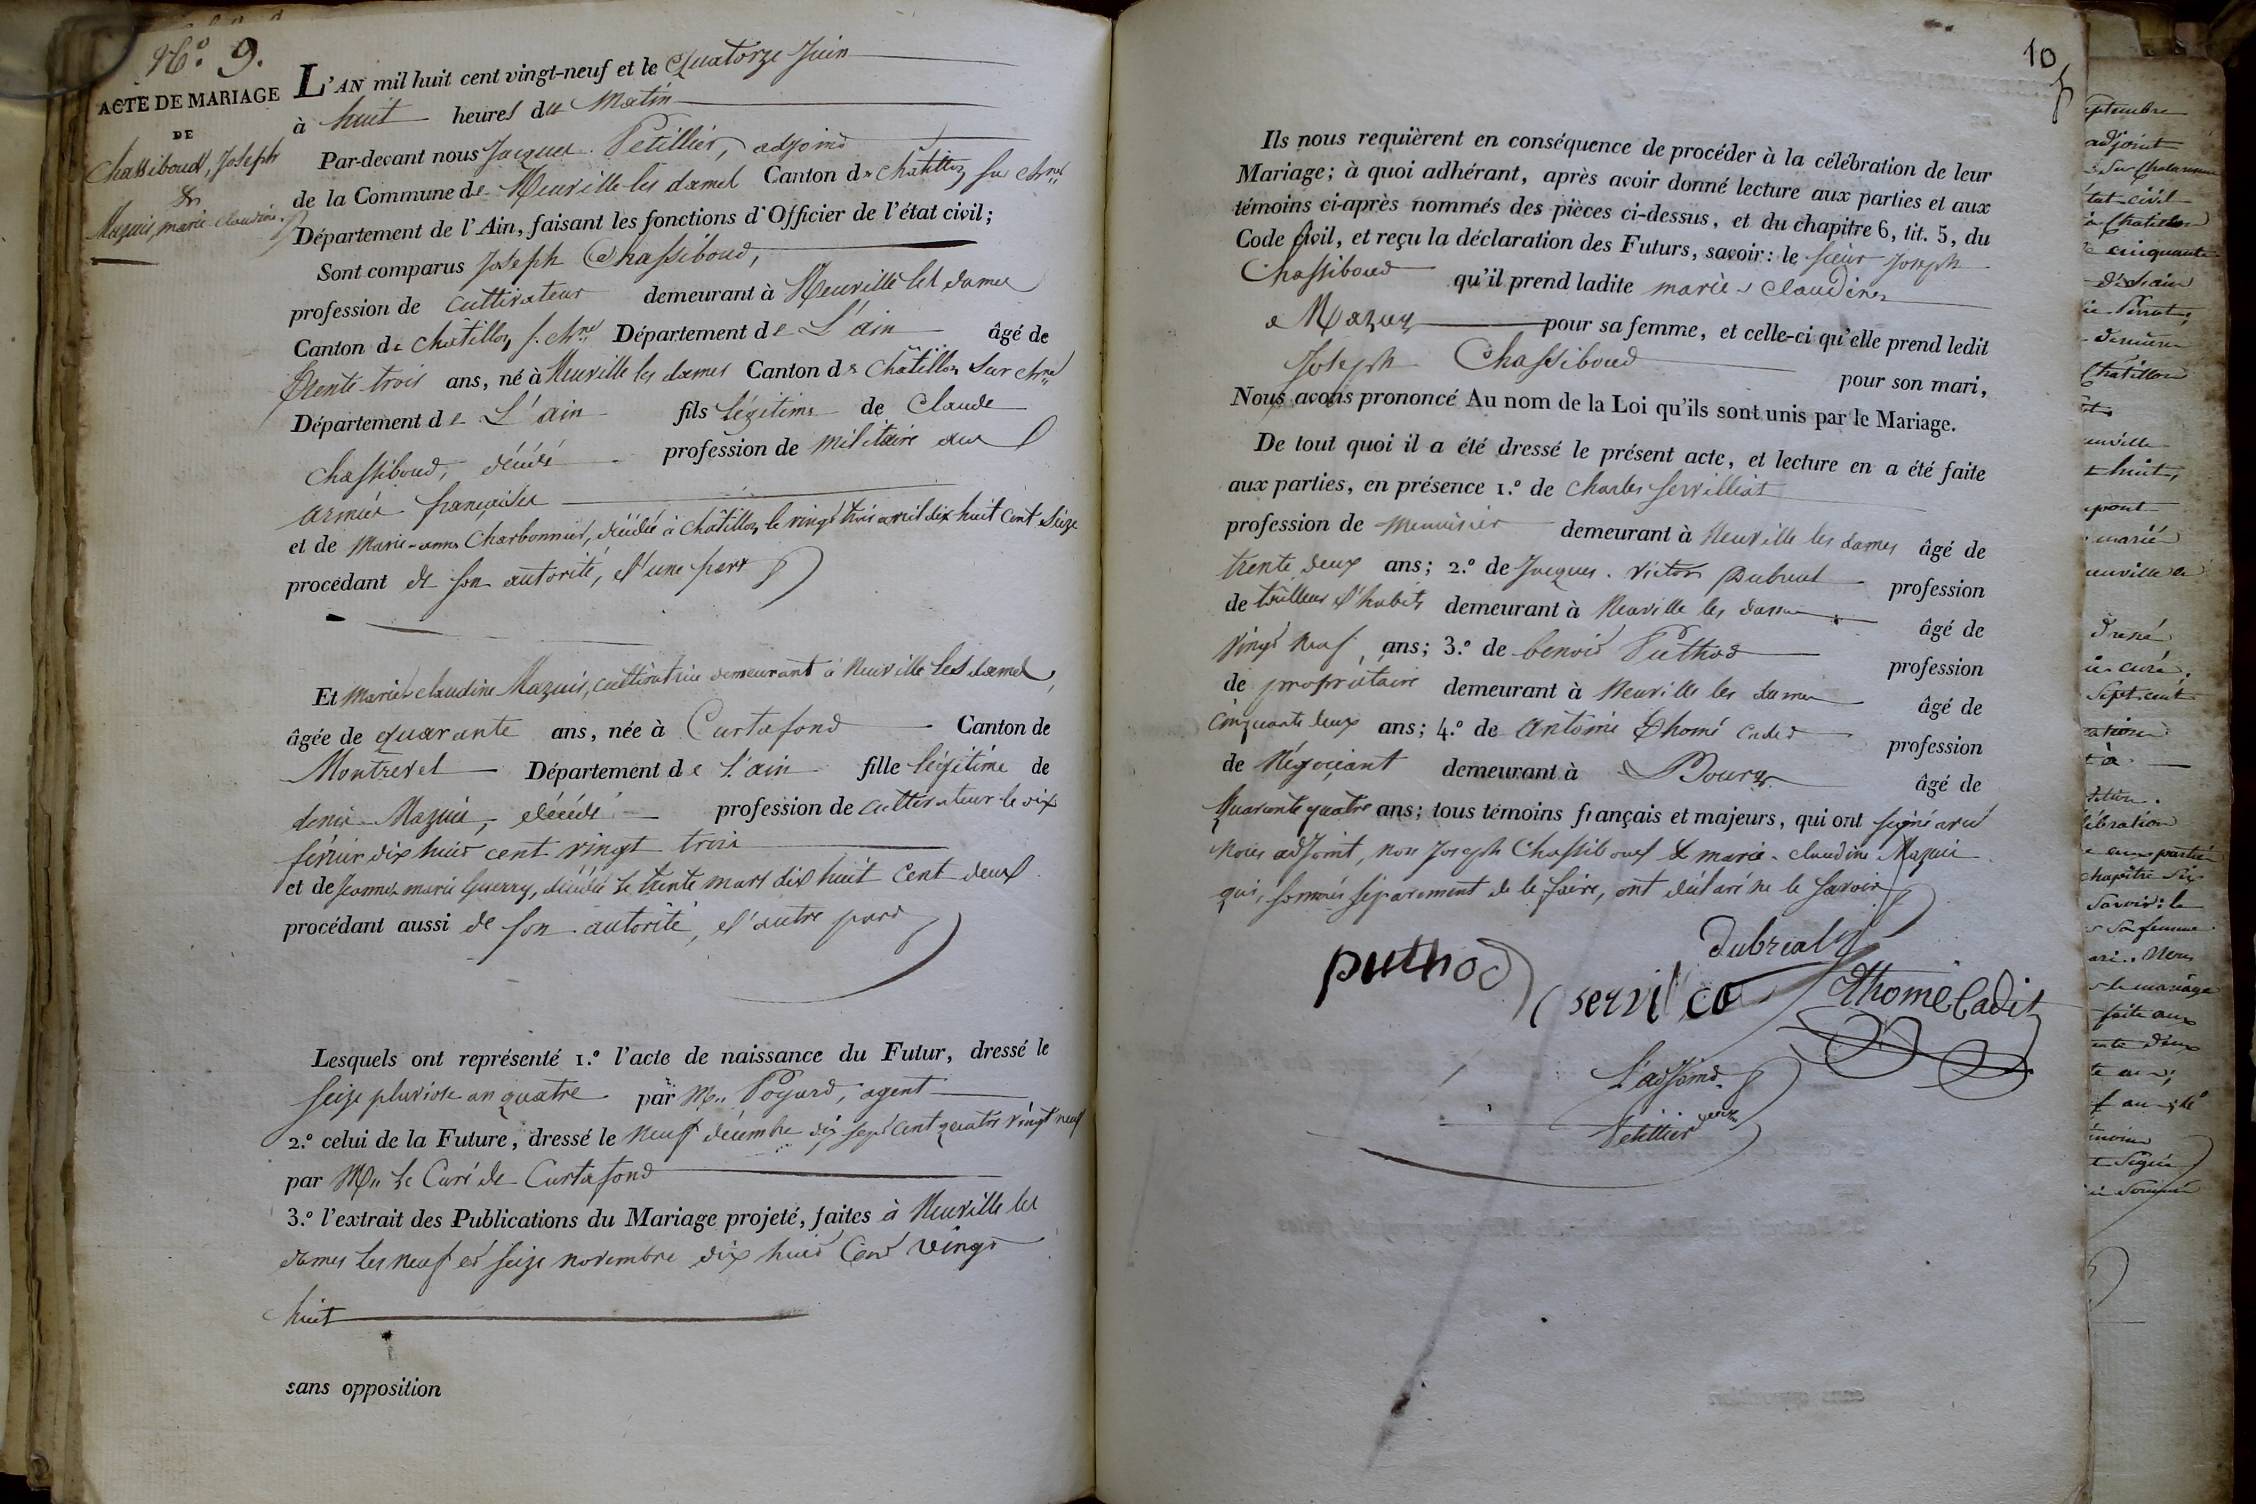 N.° 9.
ACTE DE MARIAGE
DE
Chassiboud, Joseph
&
Mazuis, marie claudine.
L'AN mil huit cent vingt-neuf et le Quatorze Juin
à huit heures du Matin
Par-devant nous Jacques Pétillier, adjoind
de la Commune de Neuville les dames Canton de Châtillon su Chne
Département de l'Ain, faisant les fonctions d'Officier de l'état civil;
Sont comparus Joseph Chassiboud,
profession de cultivateur demeurant à Neuville les dames
Canton de Châtillon s. Chne Département de L'ain âgé de
trente trois ans, né à Neuville les dames Canton de Châtillon sur Chne
Département de L'ain fils légitime de Claude
Chassiboud, décédé profession de militaire aux
armées françaises
et de Marie-anne Charbonnier, décédée à Châtillon le vingt trois avril dix huit cent seize
procédant de son autorité, d'une part
Et Marie claudine Mazuis, cultivatrice demeurant à Neuville les dames,
âgée de quarante ans, née à Curtafond Canton de
Montrevel Département de L'ain fille légitime de
denis Mazuis, décédé profession de cultivateur le dix
février dix huit cent vingt trois
et de Jeanne marie Guerry, décédée le trente mars dix huit cent deux
procédant aussi de son autorité, d'autre part
Lesquels ont représenté 1.° l'acte de naissance du Futur, dressé le
seize pluviose an quatre par M. Poyard, agent
2.° celui de la Future, dressé le neuf décembre dix sept cent quatre vingt neuf
par M. le Curé de Curtafond
3.° l'extrait des Publications du Mariage projeté, faites à Neuville les
dames les neuf et seize novembre dix huit Cent vingt
huit
sans opposition
10
Ils nous requièrent en conséquence de procéder à la célébration de leur
Mariage; à quoi adhérant, après avoir donné lecture aux parties et aux
témoins ci-après nommés des pièces ci-dessus, et du chapitre 6, tit. 5, du
Code civil, et reçu la déclaration des Futurs, savoir: le sieur Joseph
Chassiboud qu'il prend ladite marie claudine
Mazuy pour sa femme, et celle-ci qu'elle prend ledit
Joseph Chassiboud pour son mari,
Nous avons prononcé Au nom de la Loi qu'ils sont unis par le Mariage.
De tout quoi il a été dressé le présent acte, et lecture en a été faite
aux parties, en présence 1.° de Charles Servilliat
profession de menuisier demeurant à Neuville les dames âgé de
trente deux ans; 2.° de Jacques Victor Dubreul profession
de tailleur d'habits demeurant à Neuville les dames âgé de
vingt neuf ans; 3.° de benoit Puthod profession
de propriétaire demeurant à Neuville les dames âgé de
cinquante deux ans; 4.° de Antoine Thomé Cadet profession
de Négociant demeurant à Bourg âgé de
quarante quatre ans; tous témoins français et majeurs, qui ont signé avec
nous adjoint, non Joseph Chassiboud & marie claudine Mazuis
qui, sommés séparément de le faire, ont déclaré ne le savoir
puthod
dubreal
thomé Cadit
L'adjoind
Petillier